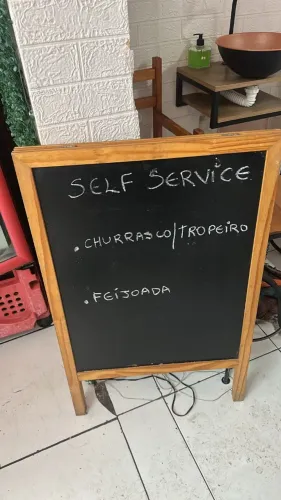 SELF SERVICE
. CHURRASCO/TROPEIRO
. FEIJOADA